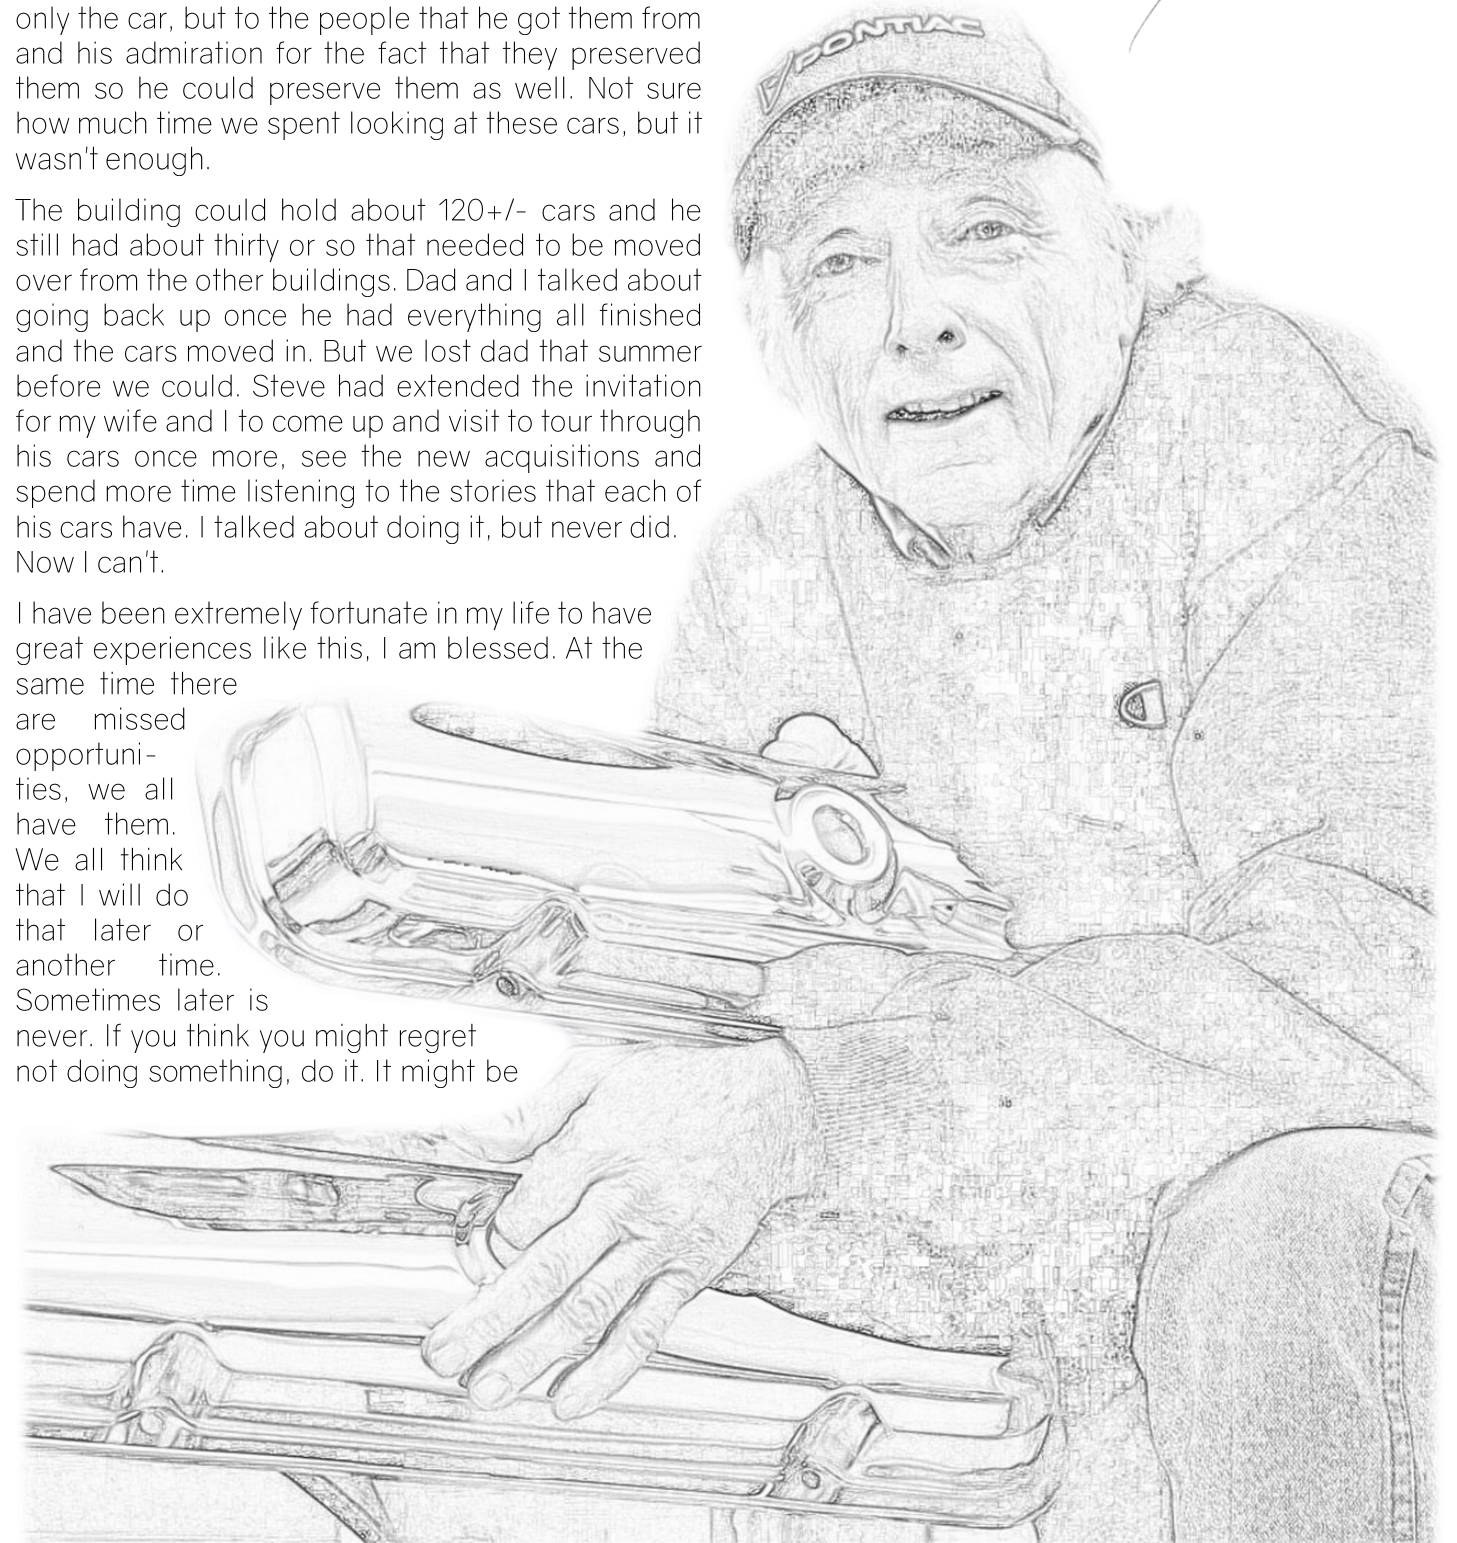 only the car, but to the people that he got them from
and his admiration for the fact that they preserved
them so he could preserve them as well. Not sure
how much time we spent looking at these cars, but it
wasn't enough.
The building could hold about 120+/- cars and he
still had about thirty or so that needed to be moved
over from the other buildings. Dad and I talked about
going back up once he had everything all finished
and the cars moved in. But we lost dad that summer
before we could. Steve had extended the invitation
for my wife and I to come up and visit to tour through
his cars once more, see the new acquisitions and
spend more time listening to the stories that each of
his cars have. I talked about doing it, but never did.
Now I can't.
I have been extremely fortunate in my life to have
great experiences like this, I am blessed. At the
same time there
are missed
opportuni-
ties, we all
have them.
We all think
that I will do
that later or
another time.
Sometimes later is
never. If you think you might regret
not doing something, do it. It might be
PONTIAC